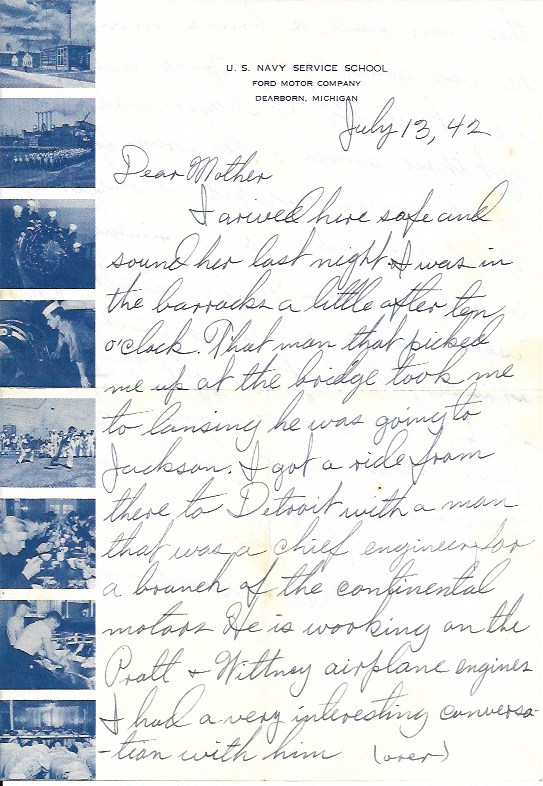 U. S. NAVY SERVICE SCHOOL
FORD MOTOR COMPANY
DEARBORN, MICHIGAN
July 13, 42
Dear Mother
I arived here safe and
sound her last night. I was in
the barracks a little after ten
o'clock. That man that picked
me up at the bridge took me
to lansing he was going to
Jackson. I got a ride from
there to Detroit with a man
that was a chief engineer for
a branch of the continental
motors He is working on the
Pratt + Wittney airplane engines
I had a very interesting conversa-
-tion with him (over)